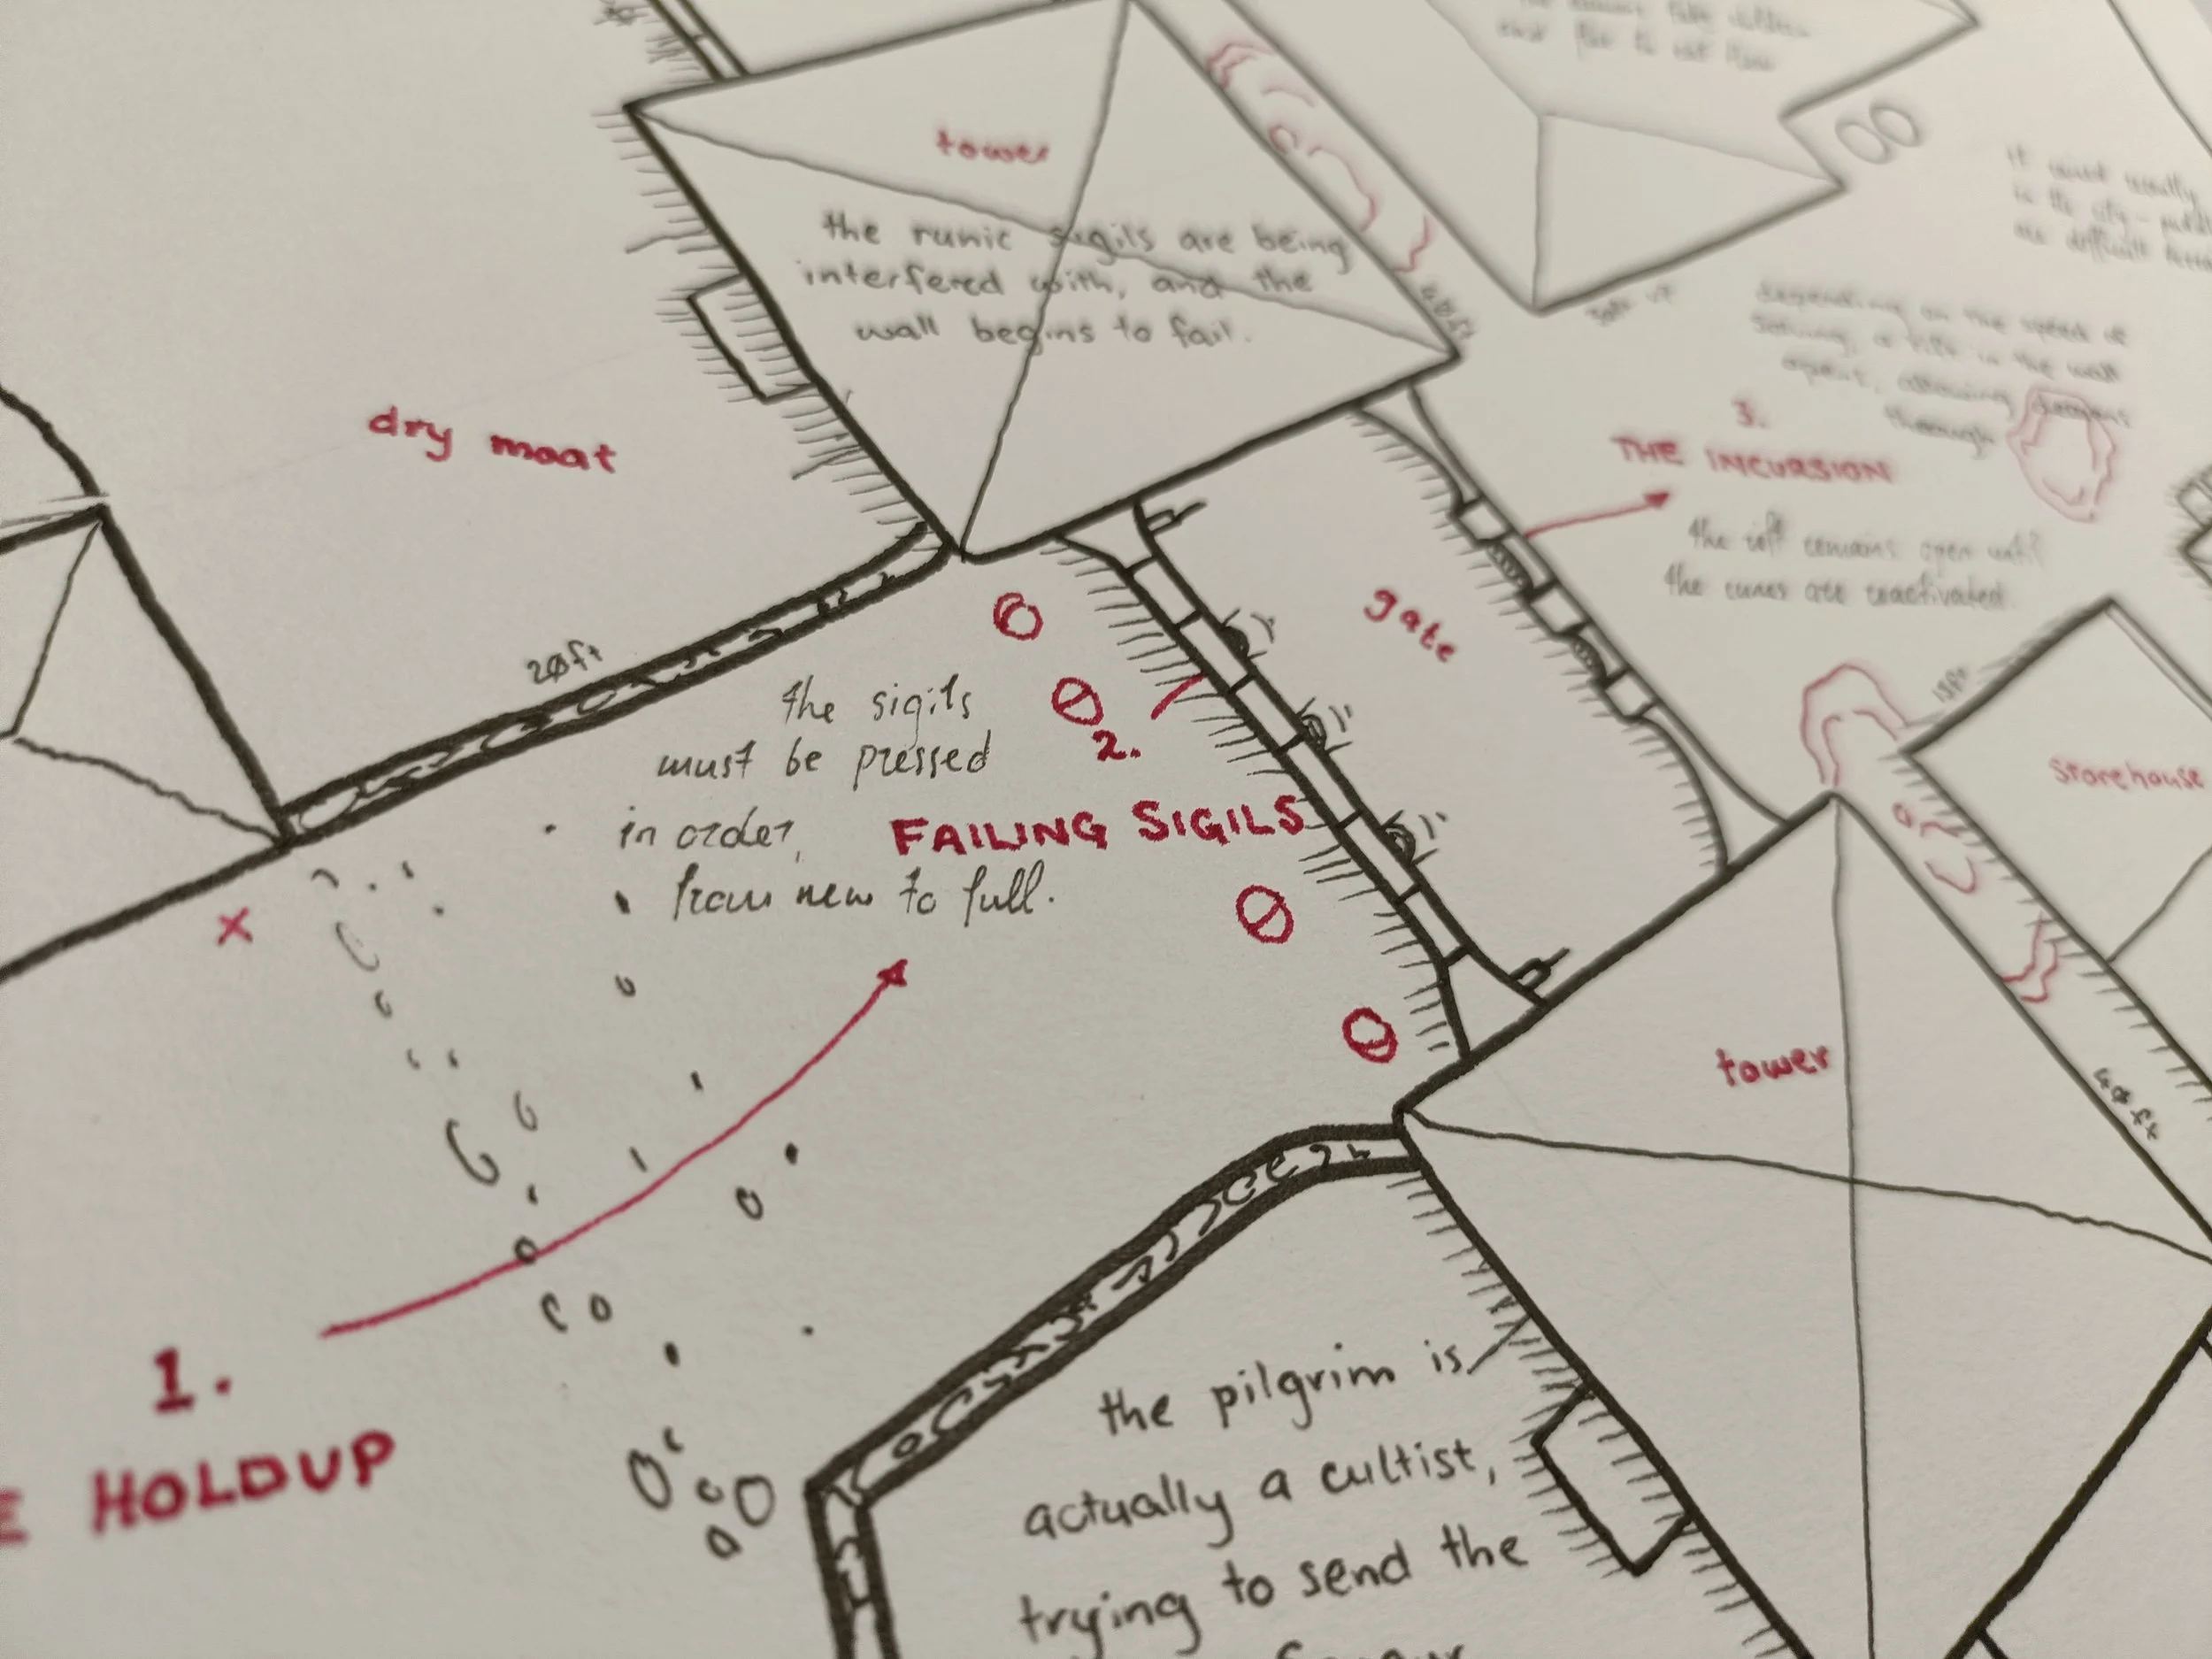 tower
the runic sigils are being
interfered with, and the
wall begins to fail.
40ft
dry moat
20ft
gate
it must
in the city -
are difficult
depending on the speed of
solving, a rift in the wall
opens, allowing demons
through
3.
THE INCURSION
the rift remains open until
the runes are reactivated.
15ft
storehouse
the sigils
must be pressed
in order,
from new to full.
2.
FAILING SIGILS
tower
40ft
1.
E HOLDUP
the pilgrim is
actually a cultist,
trying to send the